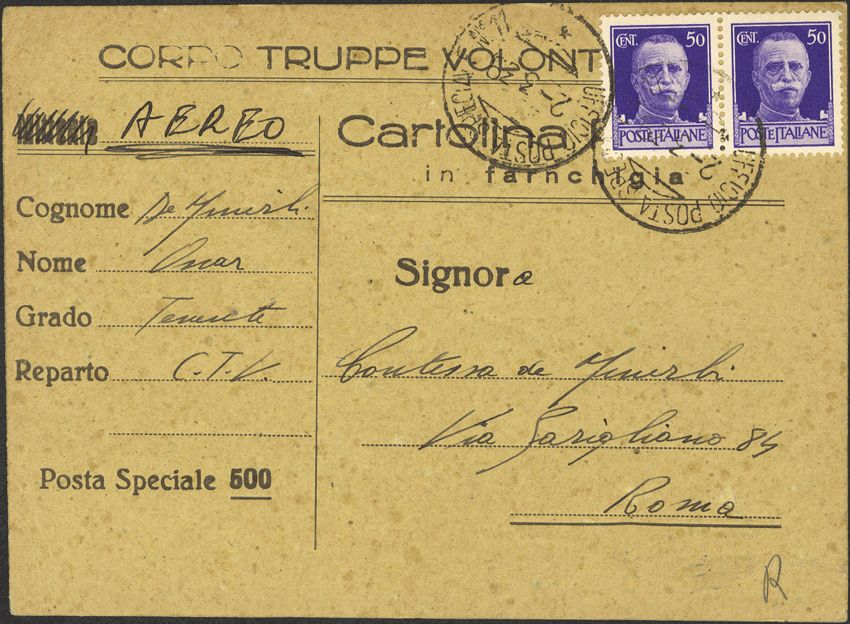 CORPO TRUPPE VOLONT
CENT. 50
POSTE ITALIANE
CENT. 50
POSTE ITALIANE
UFFICIO POSTA SPECIALE
UFFICIO POSTA
AEREO
Cartolina
in farnchigia
Cognome De
Nome Omar
Grado Tenente
Reparto C.T.V.
Posta Speciale 500
Signora
Contessa de
Via Garigliano 84
Roma
R